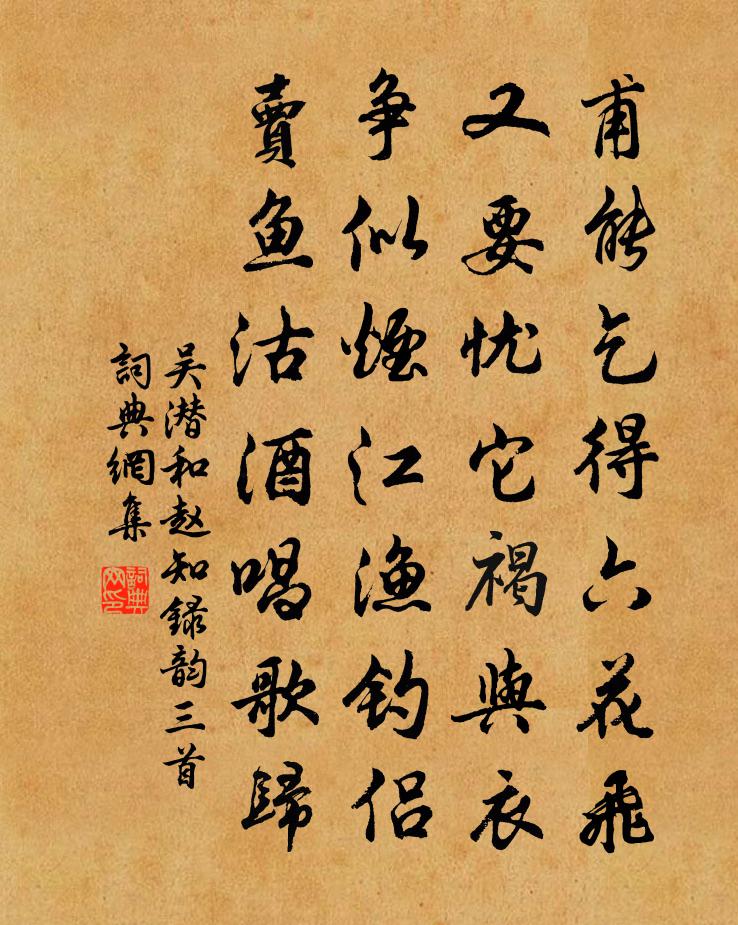 甫能乞得六花飛
又要忧它褐與衣
争似煙江渔钓侣
賣鱼沽酒唱歌歸
吴潜和赵知録韵三首
詞典網集
詞典网印